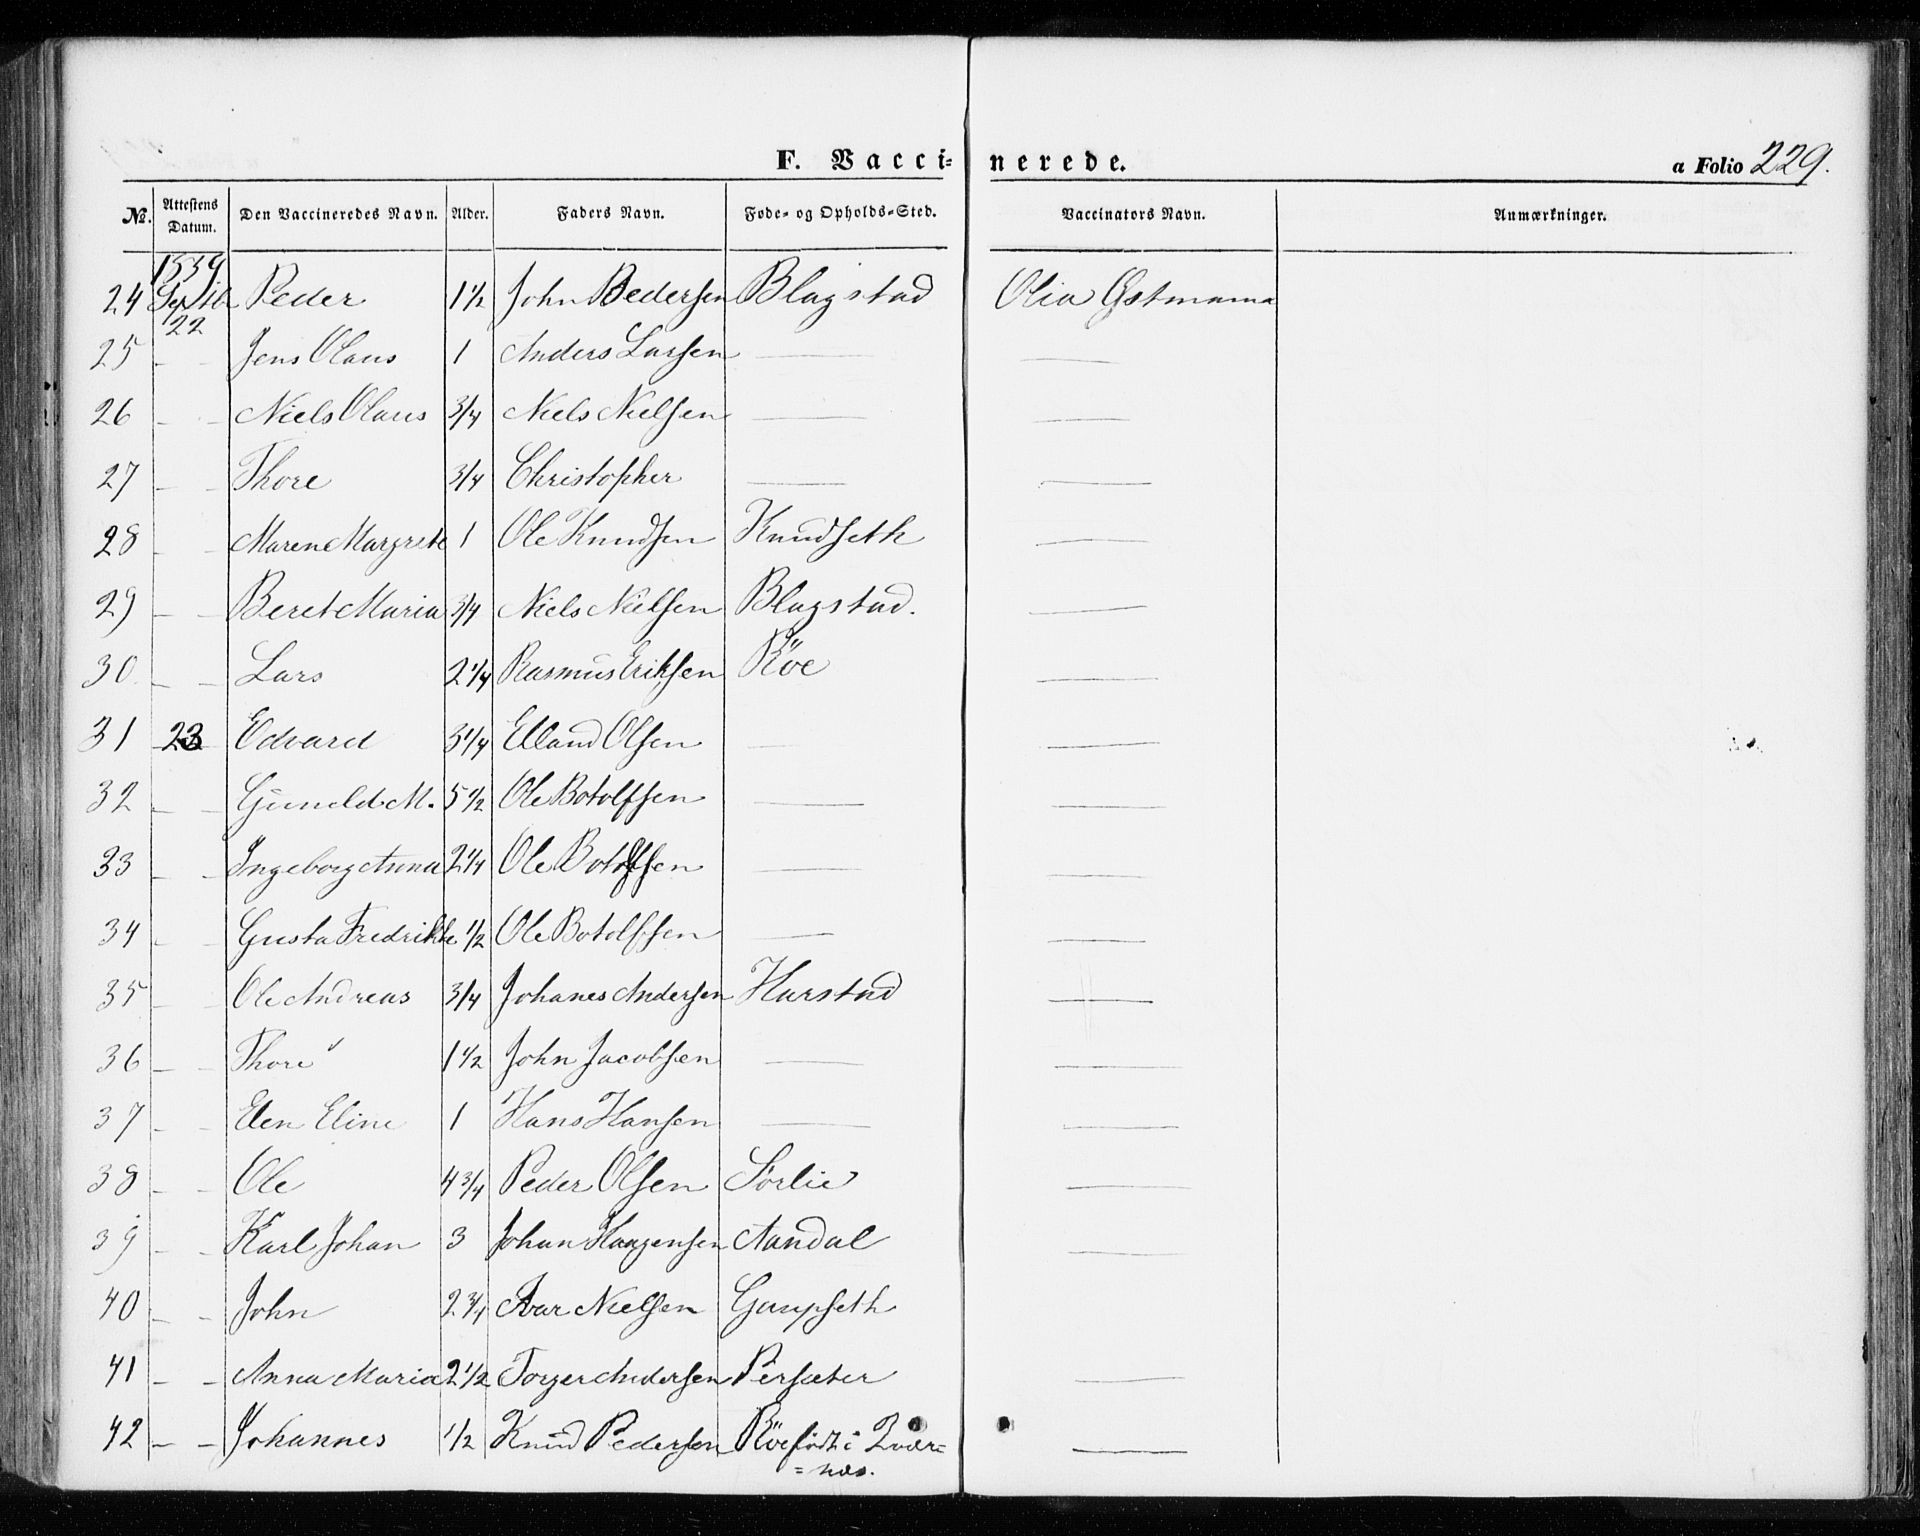 F. Vaccinerede. a Folio 229.
No. Attestens Datum. Den Vaccineredes Navn. Alder. Faders Navn. Føde- og Opholds-Sted. Vaccinators Navn. Anmærkninger.
1839
24 Septb Peder 1 1/2 John Pedersen Blagstad Olia Østmama
22
25 — — Jens Olaus 1 Anders Larsen — —
26 — — Niels Olaus 3/4 Niels Nielsen — —
27 — — Thore 3/4 Christopher — —
28 — — Maren Margrete 1 Ole Knudsen Knudseth —
29 — — Beret Maria 3/4 Niels Nielsen Blagstad. —
30 — — Lars 2 1/4 Rasmus Eriksen Röe —
31 — 23 — Edvard 3 1/4 Elland Olsen — —
32 — — Guneld M. 5 1/2 Ole Botolfsen — —
33 — — Ingeborg Anna 2 1/4 Ole Botolfsen — —
34 — — Gusta Fredrikke 1/2 Ole Botolfsen — —
35 — — Ole Andreas 3/4 Johanes Andersen Harstad —
36 — — Thore 1 1/2 John Jacobsen — —
37 — — Elen Eline 1 Hans Hansen — —
38 — — Ole 4 3/4 Peder Olsen Sørlie —
39 — — Karl Johan 3 Johan Haagensen Aandal —
40 — — John 2 3/4 Ivar Nielsen Gaupseth
41 — — Anna Maria 2 1/2 Torger Andersen Persæter —
42 — — Johannes 1/2 Knud Pedersen Röe født i Qvær= —
=næs.